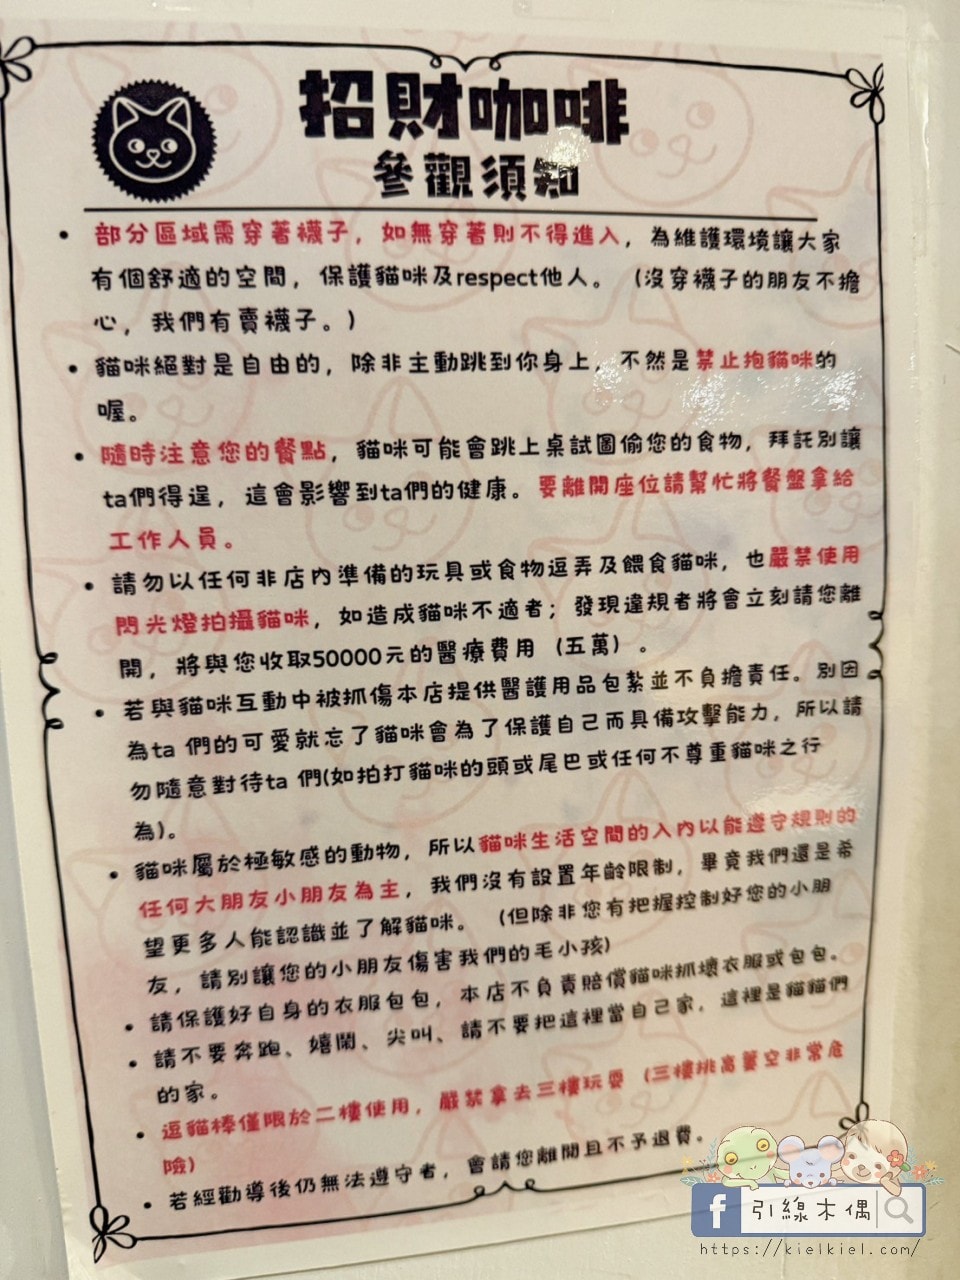 招財咖啡
參觀須知
• 部分區域需穿著襪子，如無穿著則不得進入，為維護環境讓大家
有個舒適的空間，保護貓咪及respect他人。（沒穿襪子的朋友不擔
心，我們有賣襪子。)
• 貓咪絕對是自由的，除非主動跳到你身上，不然是禁止抱貓咪的
喔。
• 隨時注意您的餐點，貓咪可能會跳上桌試圖偷您的食物，拜託別讓
ta們得逞，這會影響到ta們的健康。要離開座位請幫忙將餐盤拿給
工作人員。
• 請勿以任何非店內準備的玩具或食物逗弄及餵食貓咪，也嚴禁使用
閃光燈拍攝貓咪，如造成貓咪不適者；發現違規者將會立刻請您離
開，將與您收取50000元的醫療費用（五萬）。
• 若與貓咪互動中被抓傷本店提供醫護用品包紮並不負擔責任。別因
為ta 們的可愛就忘了貓咪會為了保護自己而具備攻擊能力，所以請
勿隨意對待ta 們(如拍打貓咪的頭或尾巴或任何不尊重貓咪之行
為)。
• 貓咪屬於極敏感的動物，所以貓咪生活空間的入內以能遵守規則的
任何大朋友小朋友為主，我們沒有設置年齡限制，畢竟我們還是希
望更多人能認識並了解貓咪。（但除非您有把握控制好您的小朋
友，請別讓您的小朋友傷害我們的毛小孩)
• 請保護好自身的衣服包包，本店不負責賠償貓咪抓壞衣服或包包。
• 請不要奔跑、嬉鬧、尖叫、請不要把這裡當自己家，這裡是貓貓們
的家。
• 逗貓棒僅限於二樓使用，嚴禁拿去三樓玩耍（三樓挑高簍空非常危
險)
• 若經勸導後仍無法遵守者，會請您離開且不予退費。
f 引線木偶
https://kielkiel.com/